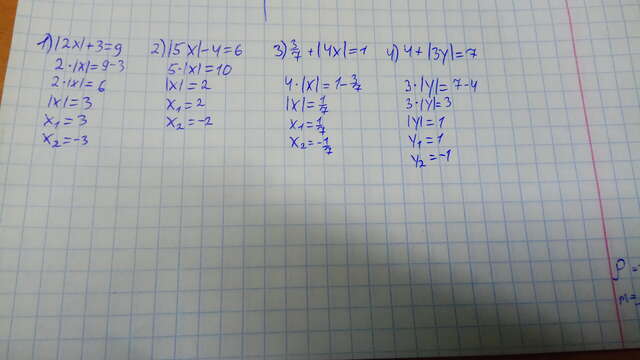 1) |2x|+3=9
2·|x|=9-3
2·|x|=6
|x|=3
x₁=3
x₂=-3
2) |5x|-4=6
5·|x|=10
|x|=2
x₁=2
x₂=-2
3) 3/7 + |4x|=1
4·|x|=1-3/7
|x|=1/7
x₁=1/7
x₂=-1/7
4) 4+|3y|=7
3·|y|=7-4
3·|y|=3
|y|=1
y₁=1
y₂=-1
m=